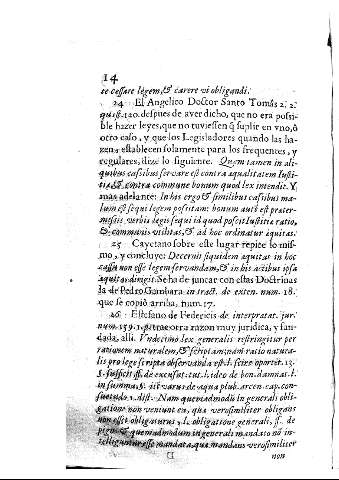 14
te cessare legem, & carere vi obligandi.
24 El Angelico Doctor Santo Tomás 2. 2.
quæst. 120. despues de aver dicho, que no era possi-
ble hazer leyes, que no tuviessen q̃ suplir en vno, ò
otro caso, y que los Legisladores quando las ha-
zen, establecen solamente para los frequentes, y
regulares, dize lo siguiente. Quem tamen in ali-
quibus casibus servare est contra æqualitatem Iusti-
tiæ, & contra commune bonum quod lex intendit. Y
mas adelante: In his ergo & similibus casibus ma-
lum est sequi legem positam: bonum autē est præter-
missis verbis legis sequi id quod poscit Iustitiæ ratio,
& communis vtilitas, & ad hoc ordinatur æquitas.
25 Cayetano sobre este lugar repite lo mis-
mo, y concluye: Decernit siquidem æquitas in hoc
casu non esse legem servandam, & in his actibus ipsa
æquitas dirigit. Seha de juntar con estas Doctrinas
la de Pedro Gambara in tract. de exten. num. 18.
que se copiò arriba, num. 17.
26 Estefano de Federicis de interpretat. juri.
num. 139. trae otra razon muy juridica, y fun-
dada, alli. Vndecimo lex generalis restringitur per
rationem naturalem, & sic etiam nam ratio natura-
lis pro lege scripta observanda est l. scire oportet. 13.
§. sufficit ff. de excusat. tut. l. ideo de bon. damnat. l.
in summa, §. ff. de aqua pluv. arcen. cap. con-
suetudo 1. dist. Nam quemadmodū in generali obli-
gatione non veniunt ea, quæ verosimiliter obligans
non esset obligaturus, l. obligatione generali, ff. de
pign. & quemadmodum in generali mandato nō in-
telliguntur esse mandata, quæ mandans verosimiliter
non